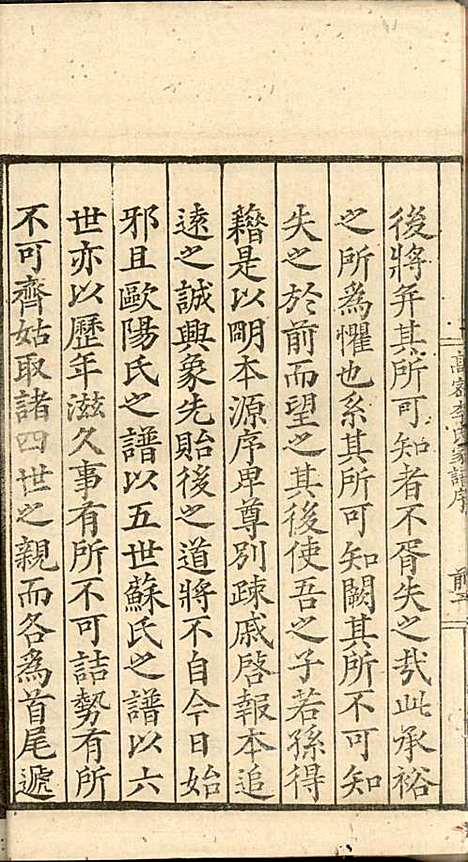 高密李氏家譜序
後將弃其所可知者不胥失之㢤此承裕
之所爲懼也系其所可知闕其所不可知
失之於前而望之其後使吾之子若孫得
藉是以明本源序卑尊別疎戚啓報本追
遠之誠興象先貽後之道將不自今日始
邪且歐陽氏之譜以五世蘇氏之譜以六
世亦以歷年滋久事有所不可詰勢有所
不可齊姑取諸四世之親而各爲首尾遞